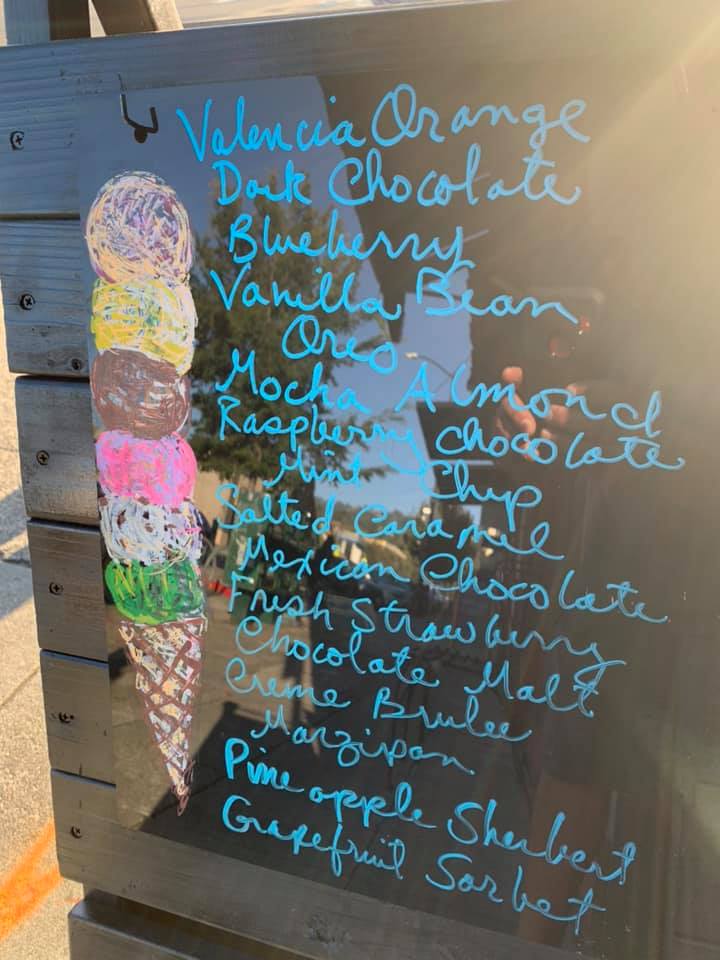 Valencia Orange
Dark Chocolate
Blueberry
Vanilla Bean
Oreo
Mocha Almond
Raspberry chocolate
Mint Chip
Salted Caramel
Mexican Chocolate
Fresh Strawberry
Chocolate Malt
Creme Brulee
Marzipan
Pineapple Sherbert
Grapefruit Sorbet